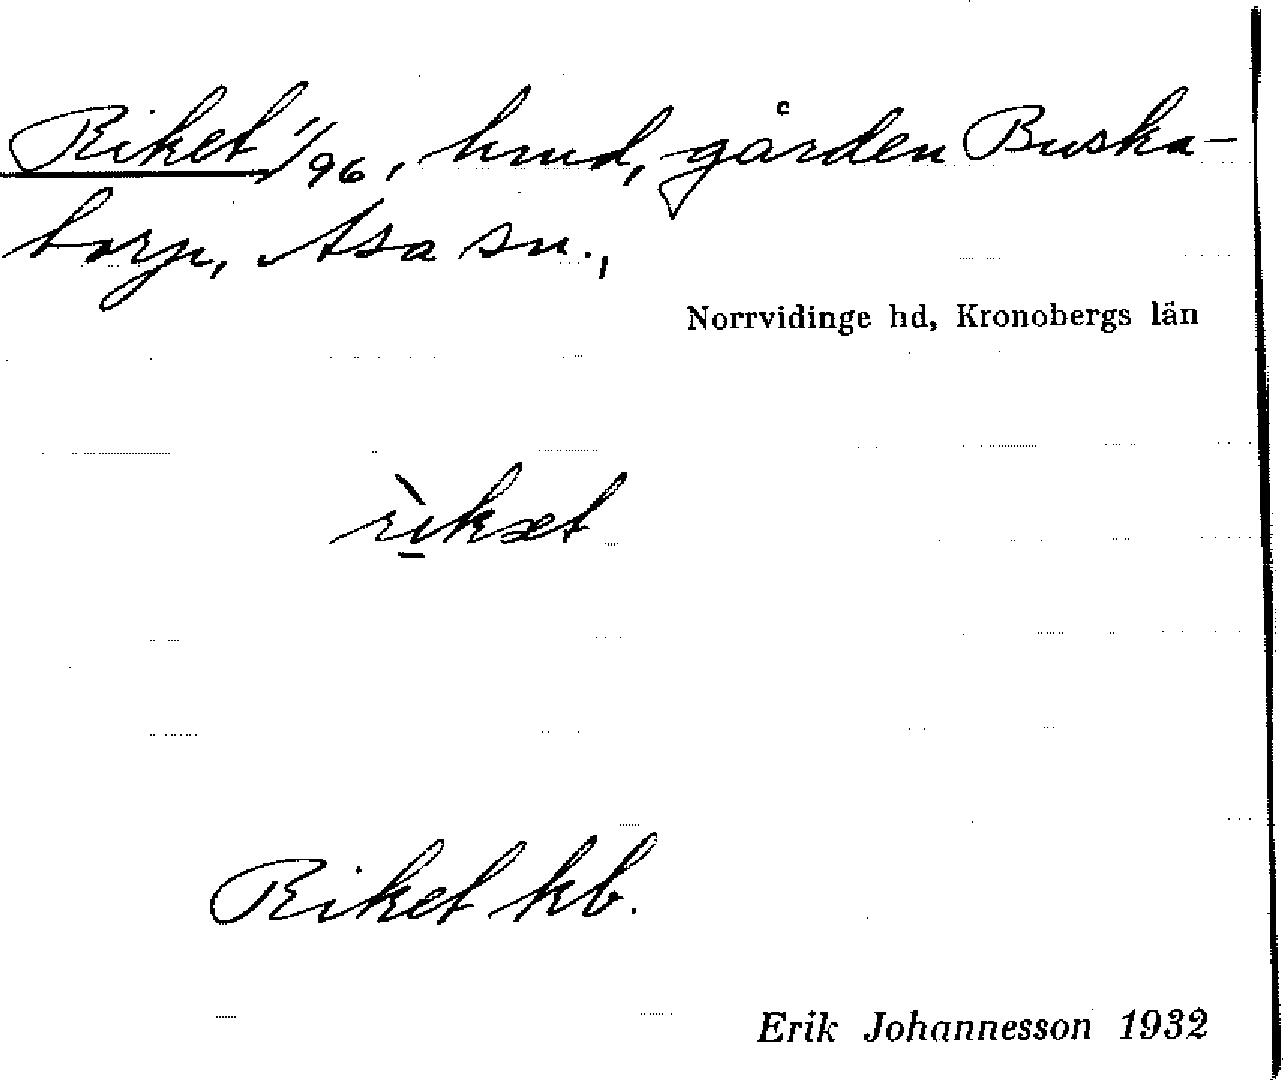 Riket 1/96, hmd, gården Buska-
torp, Asa sn.,
Norrvidinge hd, Kronobergs län
rì̠kæt
Riket kb.
Erik Johannesson 1932